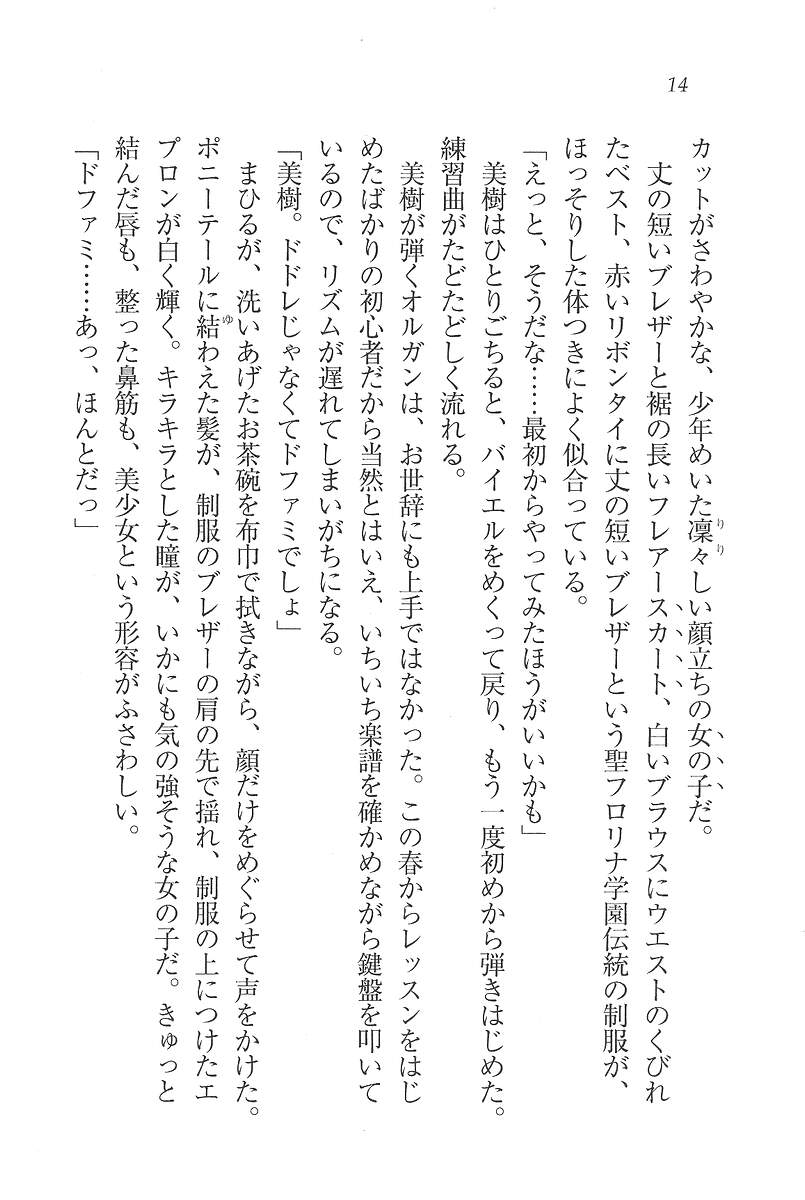 14
カットがさわやかな、少年めいた凛々しい顔立ちの女の子だ。
丈の短いブレザーと裾の長いフレアースカート、白いブラウスにウエストのくびれ
たベスト、赤いリボンタイに丈の短いブレザーという聖フロリナ学園伝統の制服が、
ほっそりした体つきによく似合っている。
「えっと、そうだな……最初からやってみたほうがいいかも」
美樹はひとりごちると、バイエルをめくって戻り、もう一度初めから弾きはじめた。
練習曲がたどたどしく流れる。
美樹が弾くオルガンは、お世辞にも上手ではなかった。この春からレッスンをはじ
めたばかりの初心者だから当然とはいえ、いちいち楽譜を確かめながら鍵盤を叩いて
いるので、リズムが遅れてしまいがちになる。
「美樹。ドドレじゃなくてドファミでしょ」
まひるが、洗いあげたお茶碗を布巾で拭きながら、顔だけをめぐらせて声をかけた。
ポニーテールに結わえた髪が、制服のブレザーの肩の先で揺れ、制服の上につけたエ
プロンが白く輝く。キラキラとした瞳が、いかにも気の強そうな女の子だ。きゅっと
結んだ唇も、整った鼻筋も、美少女という形容がふさわしい。
「ドファミ……あっ、ほんとだっ」